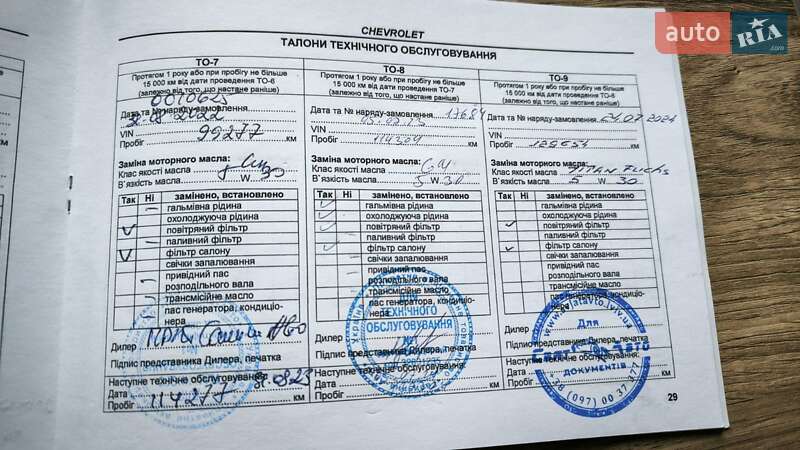 auto RIA
CHEVROLET
ТАЛОНИ ТЕХНІЧНОГО ОБСЛУГОВУВАННЯ
ТО-7
Протягом 1 року або при пробігу не більше
15 000 км від дати проведення ТО-6
(залежно від того, що настане раніше)
0010625
Дата та № наряду-замовлення
31.08.2022
VIN
Пробіг 99277 км
Заміна моторного масла:
Клас якості масла
В`язкість масла W 30
Так Ні замінено, встановлено
гальмівна рідина
охолоджуюча рідина
повітряний фільтр
паливний фільтр
фільтр салону
свічки запалювання
привідний пас
розподільного вала
трансмісійне масло
пас генератора, кондиціо-
нера
Дилер
Підпис представника Дилера, печатка
Наступне технічне обслуговування
Дата 31.08.23
Пробіг 114277 км
ТО-8
Протягом 1 року або при пробігу не більше
15 000 км від дати проведення ТО-7
(залежно від того, що настане раніше)
Дата та № наряду-замовлення 17684
VIN
Пробіг км
Заміна моторного масла:
Клас якості масла
В`язкість масла 5 W 30
Так Ні замінено, встановлено
гальмівна рідина
охолоджуюча рідина
повітряний фільтр
паливний фільтр
фільтр салону
свічки запалювання
привідний пас
розподільного вала
трансмісійне масло
пас генератора, кондиціо-
нера
ТЕХНІЧНОГО
ОБСЛУГОВУВАННЯ
№1
Дилер
Підпис представника Дилера, печатка
Наступне технічне обслуговування
Дата
Пробіг км
ТО-9
Протягом 1 року або при пробігу не більше
15 000 км від дати проведення ТО-8
(залежно від того, що настане раніше)
Дата та № наряду-замовлення 24.07.2024
VIN
Пробіг км
Заміна моторного масла:
Клас якості масла TITAN FUCHS
В`язкість масла 5 W 30
Так Ні замінено, встановлено
гальмівна рідина
охолоджуюча рідина
повітряний фільтр
паливний фільтр
фільтр салону
свічки запалювання
привідний пас
розподільного вала
трансмісійне масло
пас генератора, кондиціо-
нера
Для
Дилер
Підпис представника Дилера, печатка
ДОКУМЕНТІВ
Наступне технічне обслуговування
Дата
Пробіг км
+38 (097) 00 37 377
29